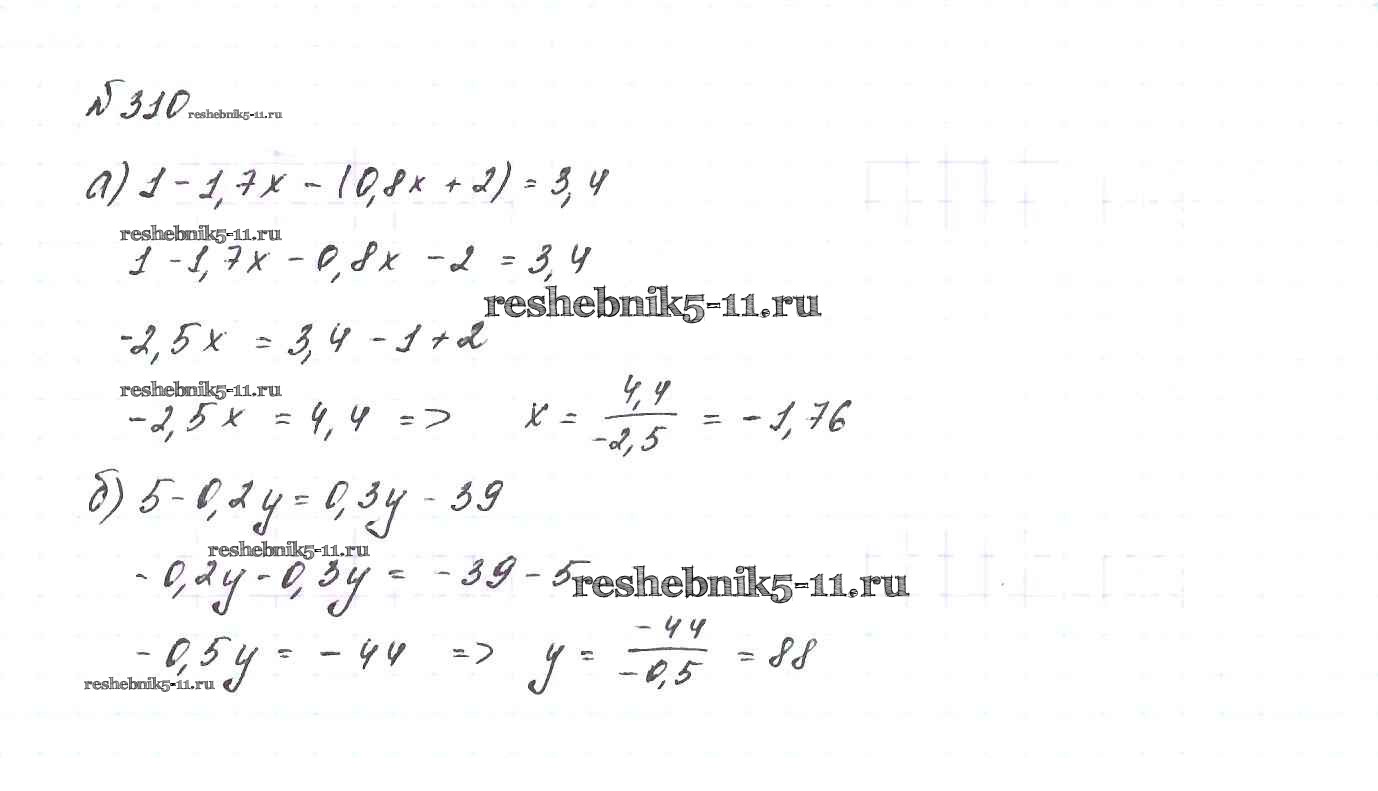 №310 reshebnik5-11.ru
а) 1 - 1,7x - (0,8x + 2) = 3,4
reshebnik5-11.ru
1 - 1,7x - 0,8x - 2 = 3,4
reshebnik5-11.ru
-2,5x = 3,4 - 1 + 2
reshebnik5-11.ru
-2,5x = 4,4 => x = 4,4 / -2,5 = -1,76
б) 5 - 0,2y = 0,3y - 39
reshebnik5-11.ru
-0,2y - 0,3y = -39 - 5
reshebnik5-11.ru
-0,5y = -44 => y = -44 / -0,5 = 88
reshebnik5-11.ru